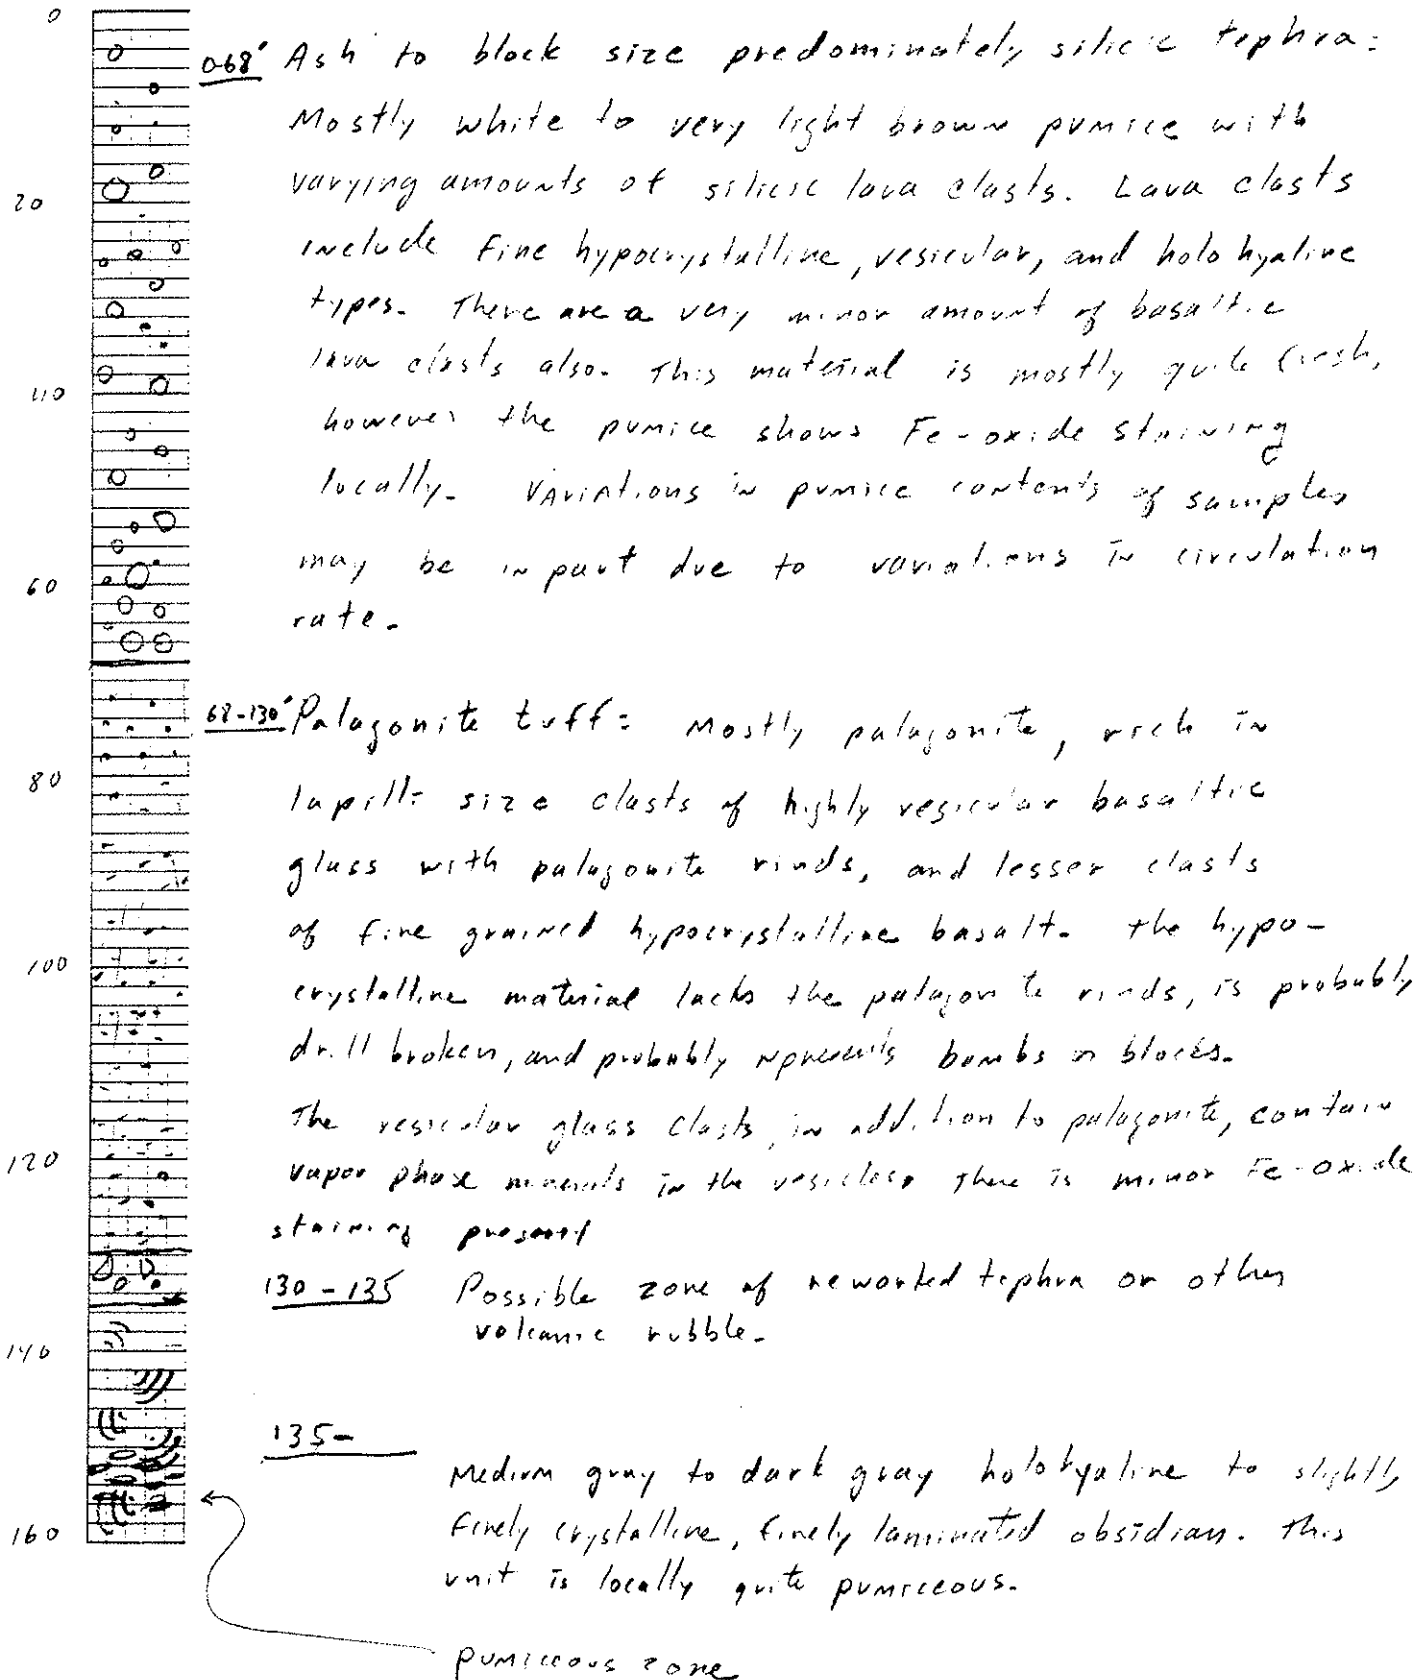 0
0-68' Ash to block size predominately silicic tephra:
Mostly white to very light brown pumice with
varying amounts of silicic lava clasts. Lava clasts
20
include fine hypocrystalline, vesicular, and holohyaline
types. There are a very minor amount of basaltic
lava clasts also. This material is mostly quite fresh,
40
however the pumice shows Fe-oxide staining
locally. Variations in pumice contents of samples
may be in part due to variations in circulation
60
rate.
68-130' Palagonite tuff: Mostly palagonite, rich in
80
lapilli size clasts of highly vesicular basaltic
glass with palagonite rinds, and lesser clasts
of fine grained hypocrystalline basalt. The hypo-
100
crystalline material lacks the palagonite rinds, is probably
drill broken, and probably represents bombs or blocks.
The vesicular glass clasts, in addition to palagonite, contain
120
vapor phase minerals in the vesicles. There is minor Fe-oxide
staining present
130-135 Possible zone of reworked tephra or other
volcanic rubble.
140
135-
Medium gray to dark gray holohyaline to slightly
finely crystalline, finely laminated obsidian. This
160
unit is locally quite pumiceous.
pumiceous zone